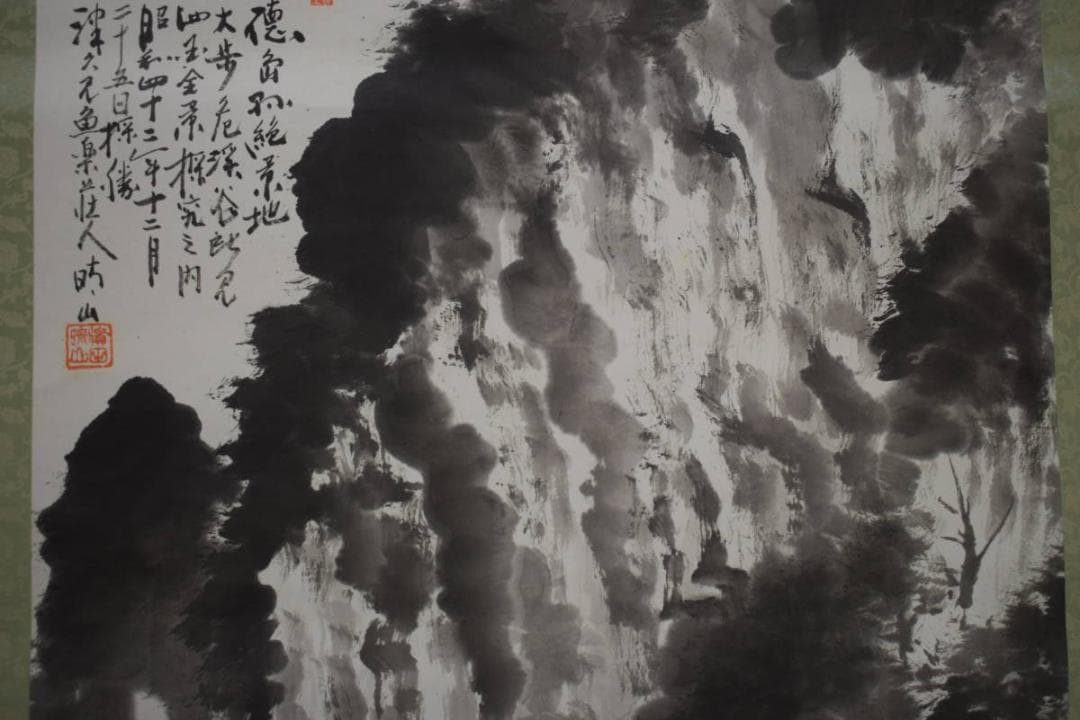 德島縣絶景地
大歩危溪谷
四国全景探究之内
昭和四十二年十二月
二十五日探勝
津久見魚楽荘人晴山